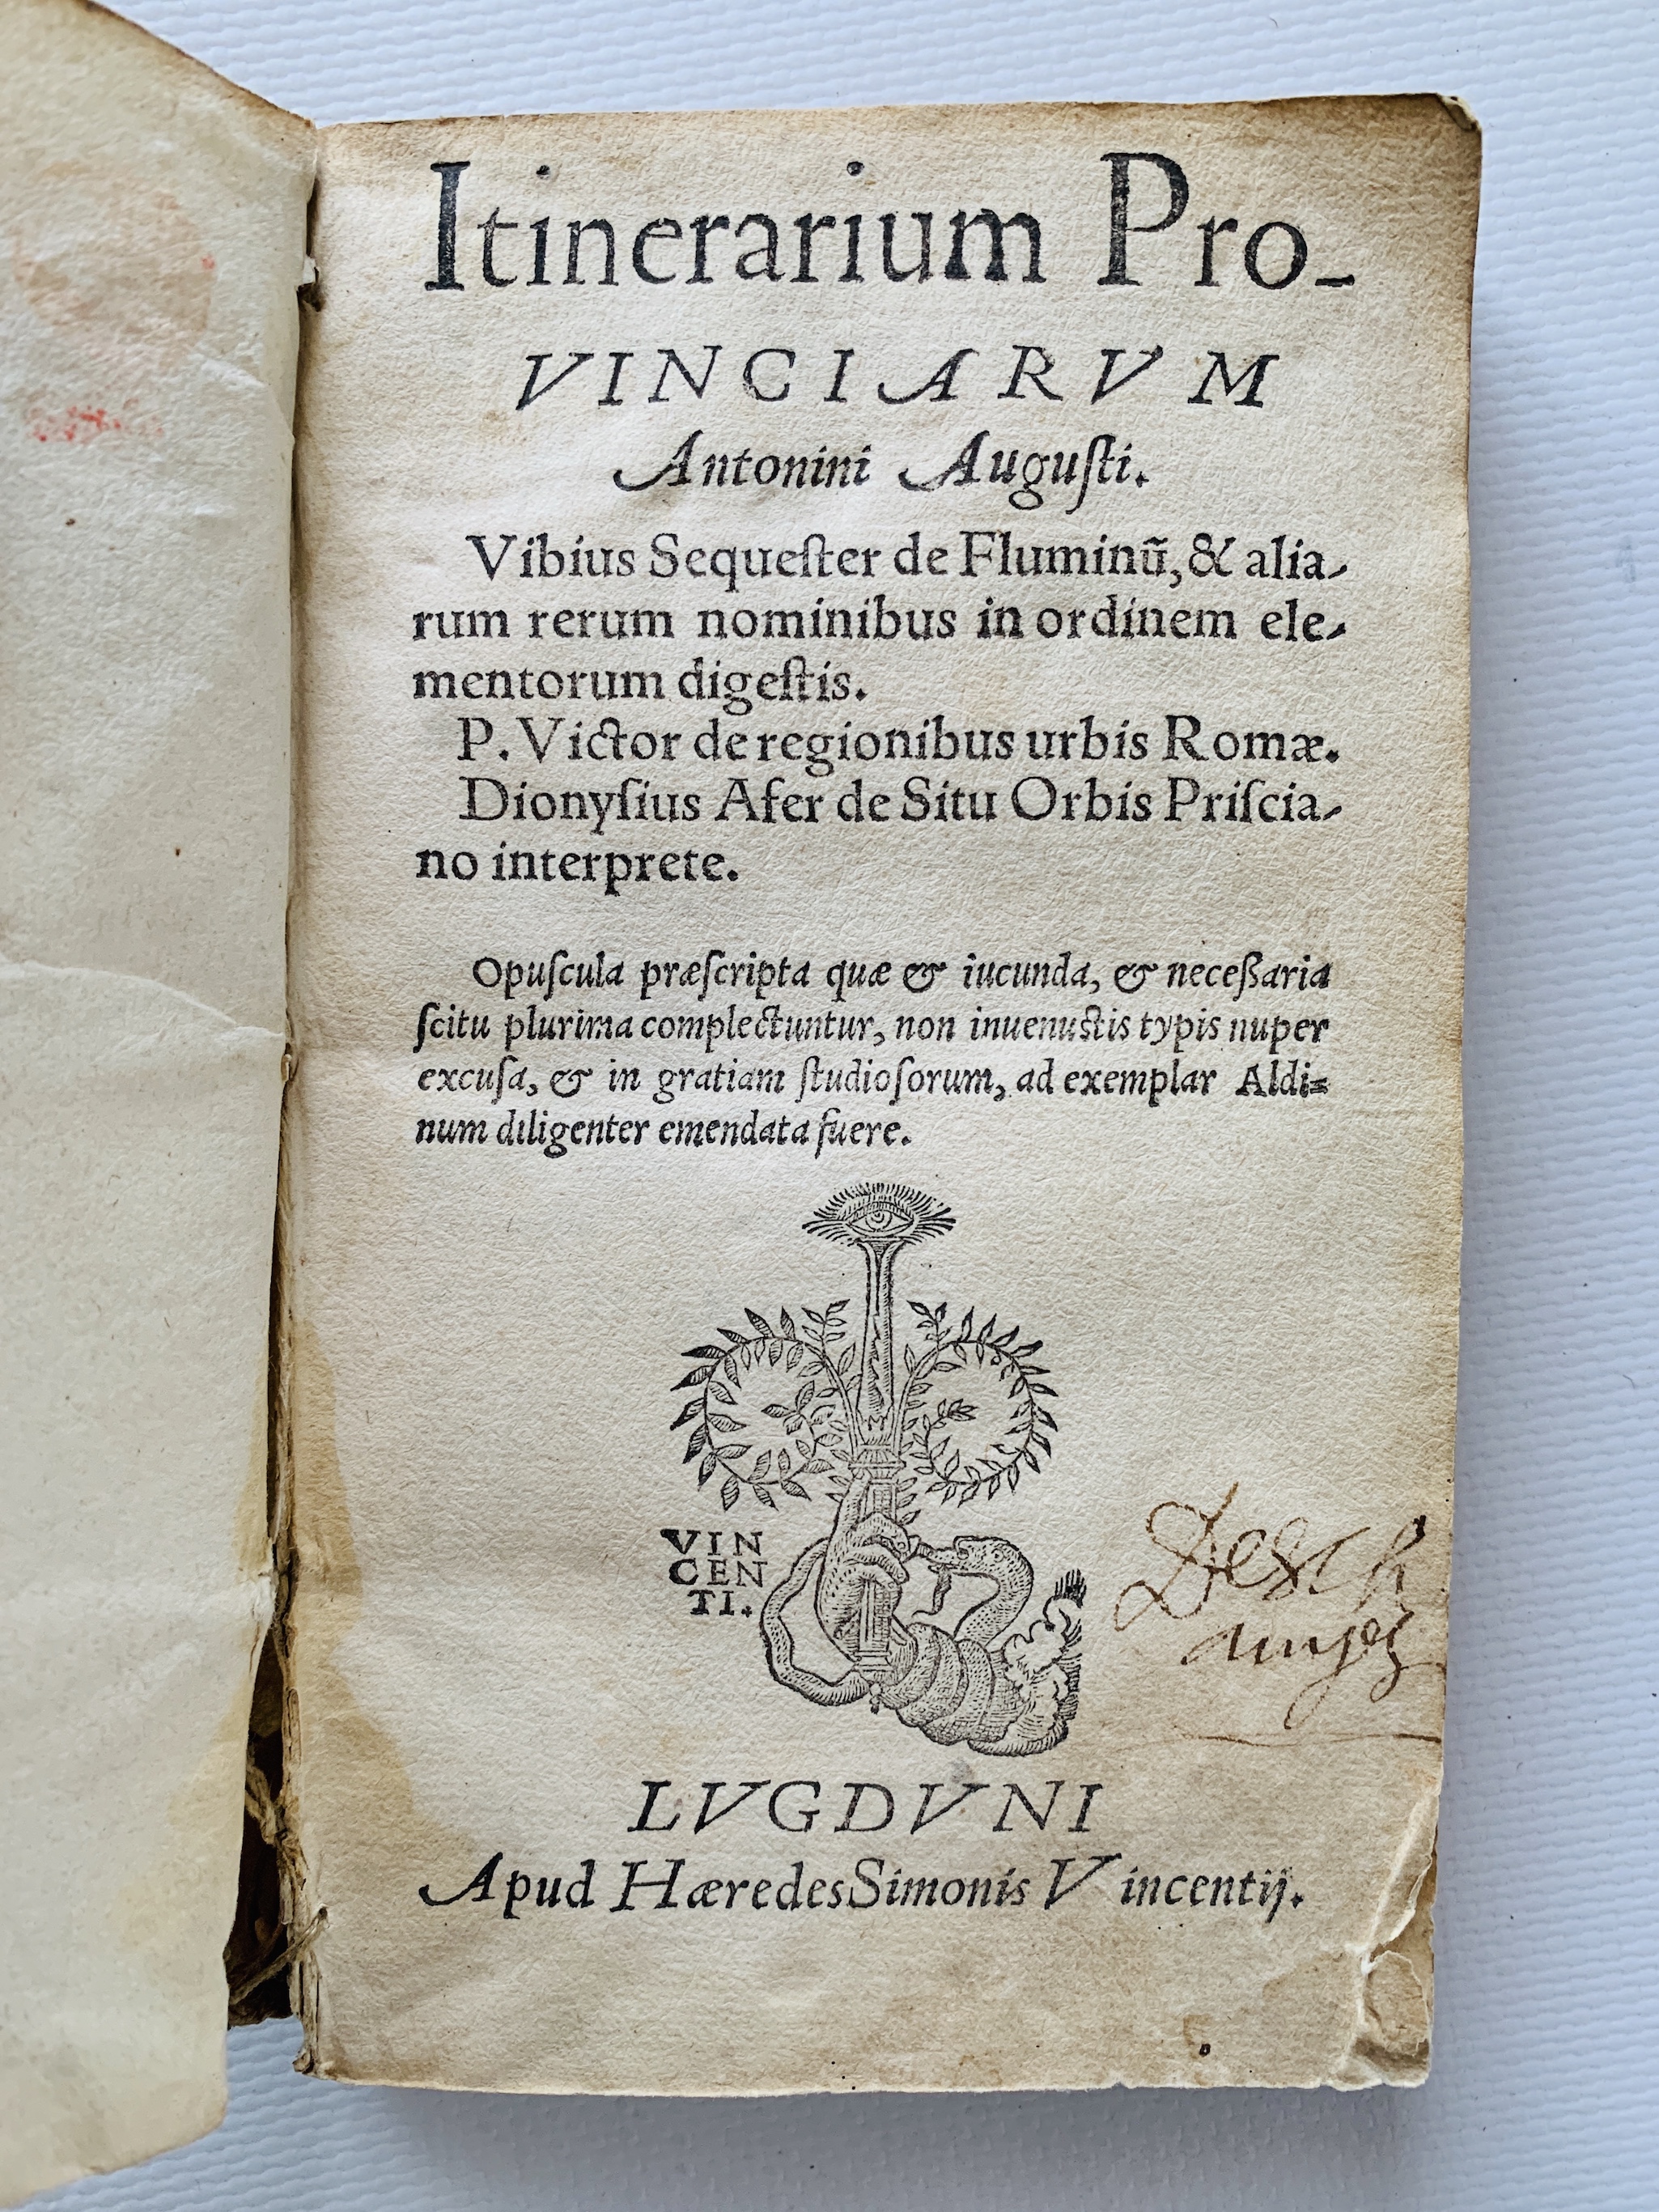 Itinerarium Pro-
VINCIARVM
Antonini Auguſti.
Vibius Sequeſter de Fluminũ, & alia-
rum rerum nominibus in ordinem ele-
mentorum digeſtis.
P. Victor de regionibus urbis Romæ.
Dionyſius Afer de Situ Orbis Priſcia-
no interprete.
Opuſcula præſcripta quæ & iucunda, & neceßaria
ſcitu plurima complectuntur, non inuenuſtis typis nuper
excuſa, & in gratiam ſtudioſorum, ad exemplar Aldi=
num diligenter emendata fuere.
VIN
CEN
TI.
LVGDVNI
Apud Hæredes Simonis Vincentij.